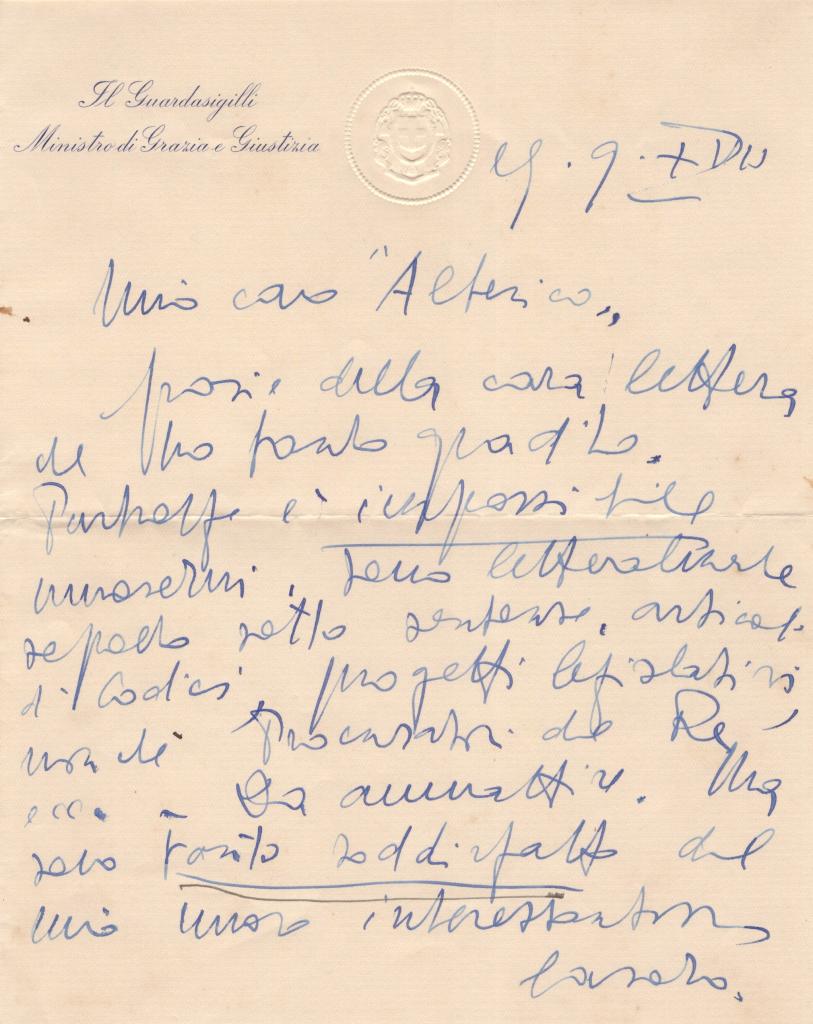 Il Guardasigilli
Ministro di Grazia e Giustizia
9. XVII
Mio caro "Alterico„
grazie della cara lettera
che ho tanto gradito.
Purtroppo è impossibile
muovermi. Sono letteralmente
sepolto sotto sentenze, articoli
di Codici, progetti legislativi,
nonché Procuratori del Re,
ecc. - Da ammattire. Ma
sono tanto soddisfatto del
mio nuovo interessantissimo
lavoro.